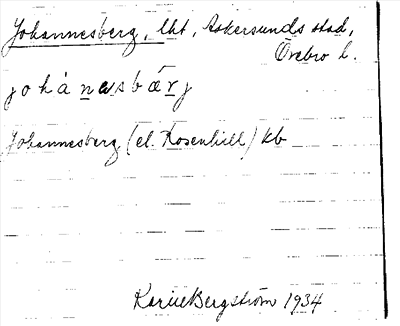 Johannesberg, lht, Askersunds stad,
Örebro l.
johánasbǽrj
Johannesberg (el. Rosenhill) kb
Karin Bergström 1934